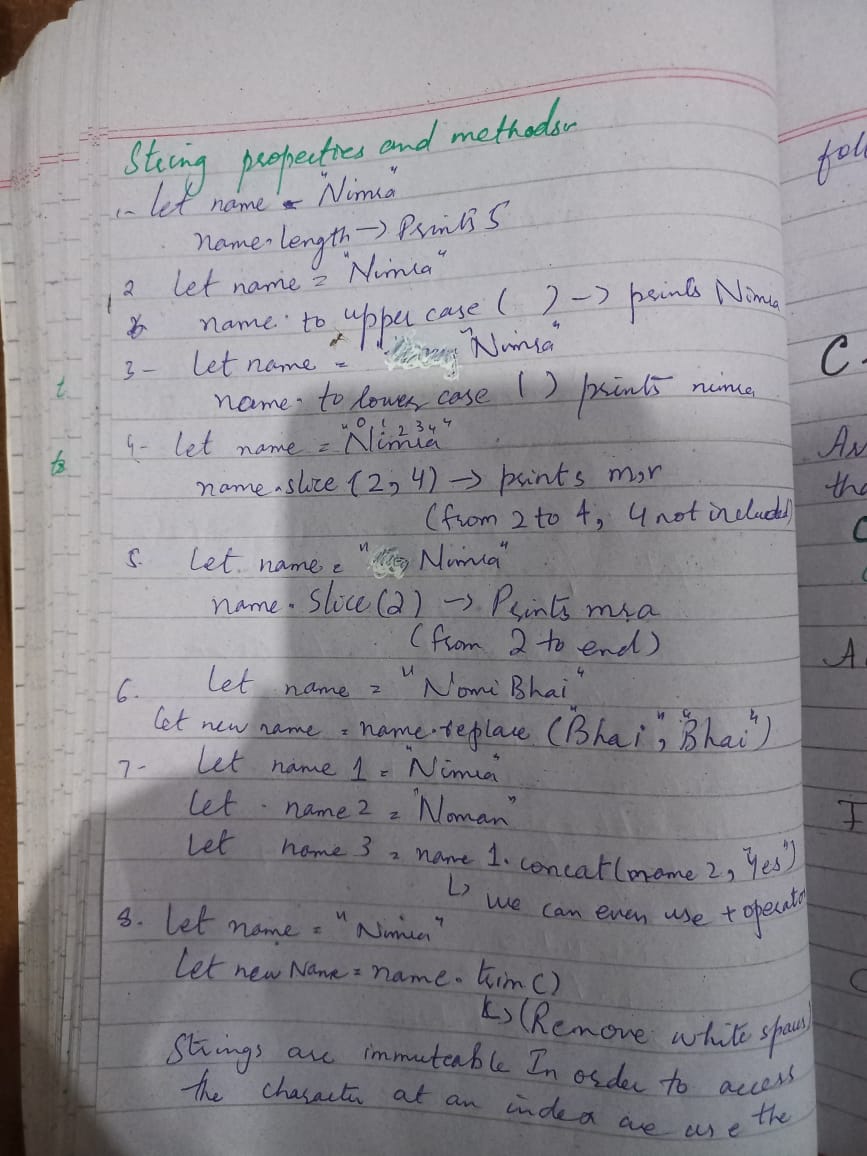 String properties and methods:-
1- let name = "Nimra"
name.length -> Prints 5
2 let name = "Nimra"
name. to upper case ( ) -> prints Nimra
3- let name = "Nimra"
name. to lower case ( ) prints nimra
4- let name = "Nimra"
0 1 2 3 4
name.slice (2, 4) -> prints m,r
(from 2 to 4, 4 not included)
5. let name = "Nimra"
name. Slice (2) -> Prints mra
(from 2 to end)
6. let name = "Nomi Bhai"
let new name = name.replace ("Bhai", "Bhai")
7- let name 1 = "Nimra"
let name 2 = "Noman"
let name 3 = name 1. concat (name 2, "Yes")
↳ we can even use + operator
8. let name = "Nimra"
let new Name = name. trim ()
↳ (Remove white spaces)
Strings are immuteable In order to access
the character at an index we use the
foll
C
An
tha
A